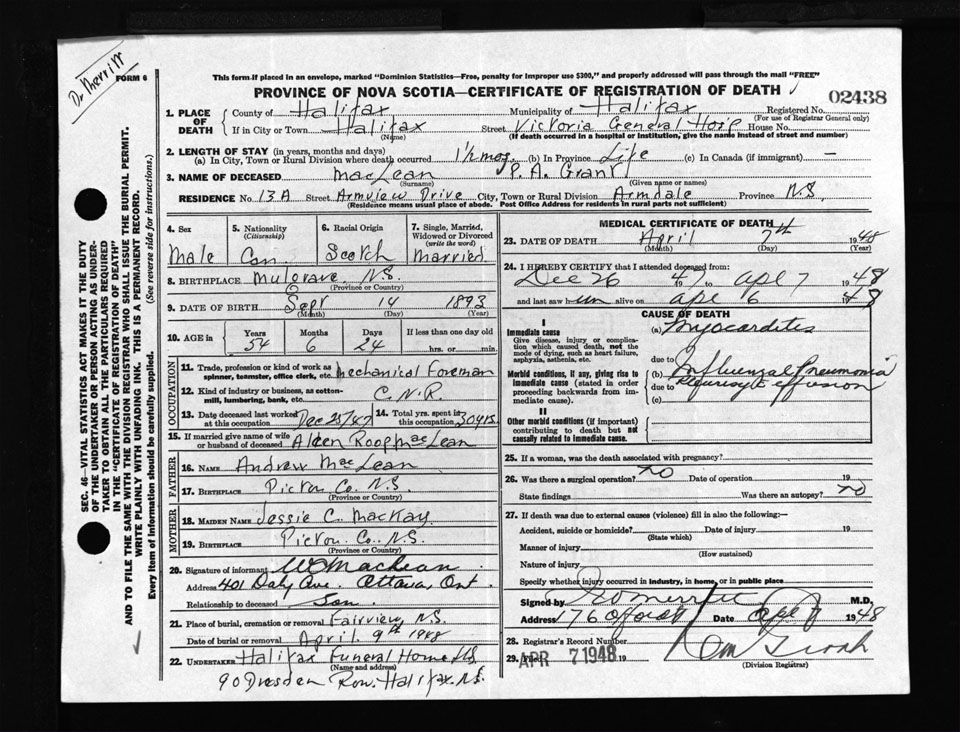 Dr Merritt
FORM 6
This form if placed in an envelope, marked "Dominion Statistics—Free, penalty for improper use $300," and properly addressed will pass through the mail "FREE"
PROVINCE OF NOVA SCOTIA—CERTIFICATE OF REGISTRATION OF DEATH
02438
1. PLACE OF DEATH County of Halifax Municipality of Halifax Registered No.
(For use of Registrar General only)
If in City or Town Halifax Street Victoria General Hosp House No.
(Name) (If death occurred in a hospital or institution, give the name instead of street and number)
2. LENGTH OF STAY (in years, months and days)
(a) In City, Town or Rural Division where death occurred 1½ mos. (b) In Province Life (c) In Canada (if immigrant) —
3. NAME OF DECEASED MacLean P. A. Grant
(Surname) (Given name or names)
RESIDENCE No. 13A Street Armview Drive City, Town or Rural Division Armdale Province N.S.
(Residence means usual place of abode. Post Office Address for residents in rural parts not sufficient)
4. Sex 5. Nationality (Citizenship) 6. Racial Origin 7. Single, Married, Widowed or Divorced (write the word)
Male Can. Scotch Married
8. BIRTHPLACE Mulgrave, N.S.
(Province or Country)
9. DATE OF BIRTH Sept 14 1893
(Month) (Day) (Year)
10. AGE in Years Months Days If less than one day old
54 6 24 hrs. or min.
OCCUPATION
11. Trade, profession or kind of work as spinner, teamster, office clerk, etc. Mechanical Foreman
12. Kind of industry or business, as cotton-mill, lumbering, bank, etc. C.N.R.
13. Date deceased last worked at this occupation Dec 25/47 14. Total yrs. spent in this occupation 30 yrs.
15. If married give name of wife or husband of deceased Aleen Roop MacLean
FATHER
16. NAME Andrew MacLean
17. BIRTHPLACE Pictou Co. N.S.
(Province or Country)
MOTHER
18. MAIDEN NAME Jessie C. MacKay
19. BIRTHPLACE Pictou. Co. N.S.
(Province or Country)
20. Signature of informant MacLean
Address 401 Daly Ave. Ottawa, Ont.
Relationship to deceased Son
21. Place of burial, cremation or removal Fairview, N.S.
Date of burial or removal April 9th 1948
22. UNDERTAKER Halifax Funeral Home N.S.
(Name and address)
90 Dresden Row. Halifax. N.S.
MEDICAL CERTIFICATE OF DEATH
23. DATE OF DEATH April 7th 1948
(Month) (Day) (Year)
24. I HEREBY CERTIFY that I attended deceased from:
Dec 26 1947 to Apl 7 1948
and last saw him alive on Apl 6 1948
CAUSE OF DEATH
I
Immediate cause
Give disease, injury or complication which caused death, not the mode of dying, such as heart failure, asphyxia, asthenia, etc.
(a) Myocarditis
due to
Morbid conditions, if any, giving rise to immediate cause (stated in order proceeding backwards from immediate cause).
(b) Influenzal Pneumonia
due to Pleurisy & effusion
(c)
II
Other morbid conditions (if important) contributing to death but not causally related to immediate cause.
25. If a woman, was the death associated with pregnancy?
26. Was there a surgical operation? no Date of operation 19
State findings Was there an autopsy? no
27. If death was due to external causes (violence) fill in also the following:—
Accident, suicide or homicide? Date of injury 19
(State which)
Manner of injury
(How sustained)
Nature of injury
Specify whether injury occurred in industry, in home, or in public place
Signed by Merritt M.D.
Address 176 Oxford St Date Apl 7 1948
28. Registrar's Record Number
29. Filed APR 7 1948 19
(Division Registrar)
SEC. 46—VITAL STATISTICS ACT MAKES IT THE DUTY
OF THE UNDERTAKER OR PERSON ACTING AS UNDERTAKER TO OBTAIN ALL THE PARTICULARS REQUIRED
IN THE "CERTIFICATE OF REGISTRATION OF DEATH"
AND TO FILE THE SAME WITH THE DIVISION REGISTRAR WHO SHALL ISSUE THE BURIAL PERMIT.
WRITE PLAINLY WITH UNFADING INK. THIS IS A PERMANENT RECORD.
Every item of information should be carefully supplied. (See reverse side for instructions.)